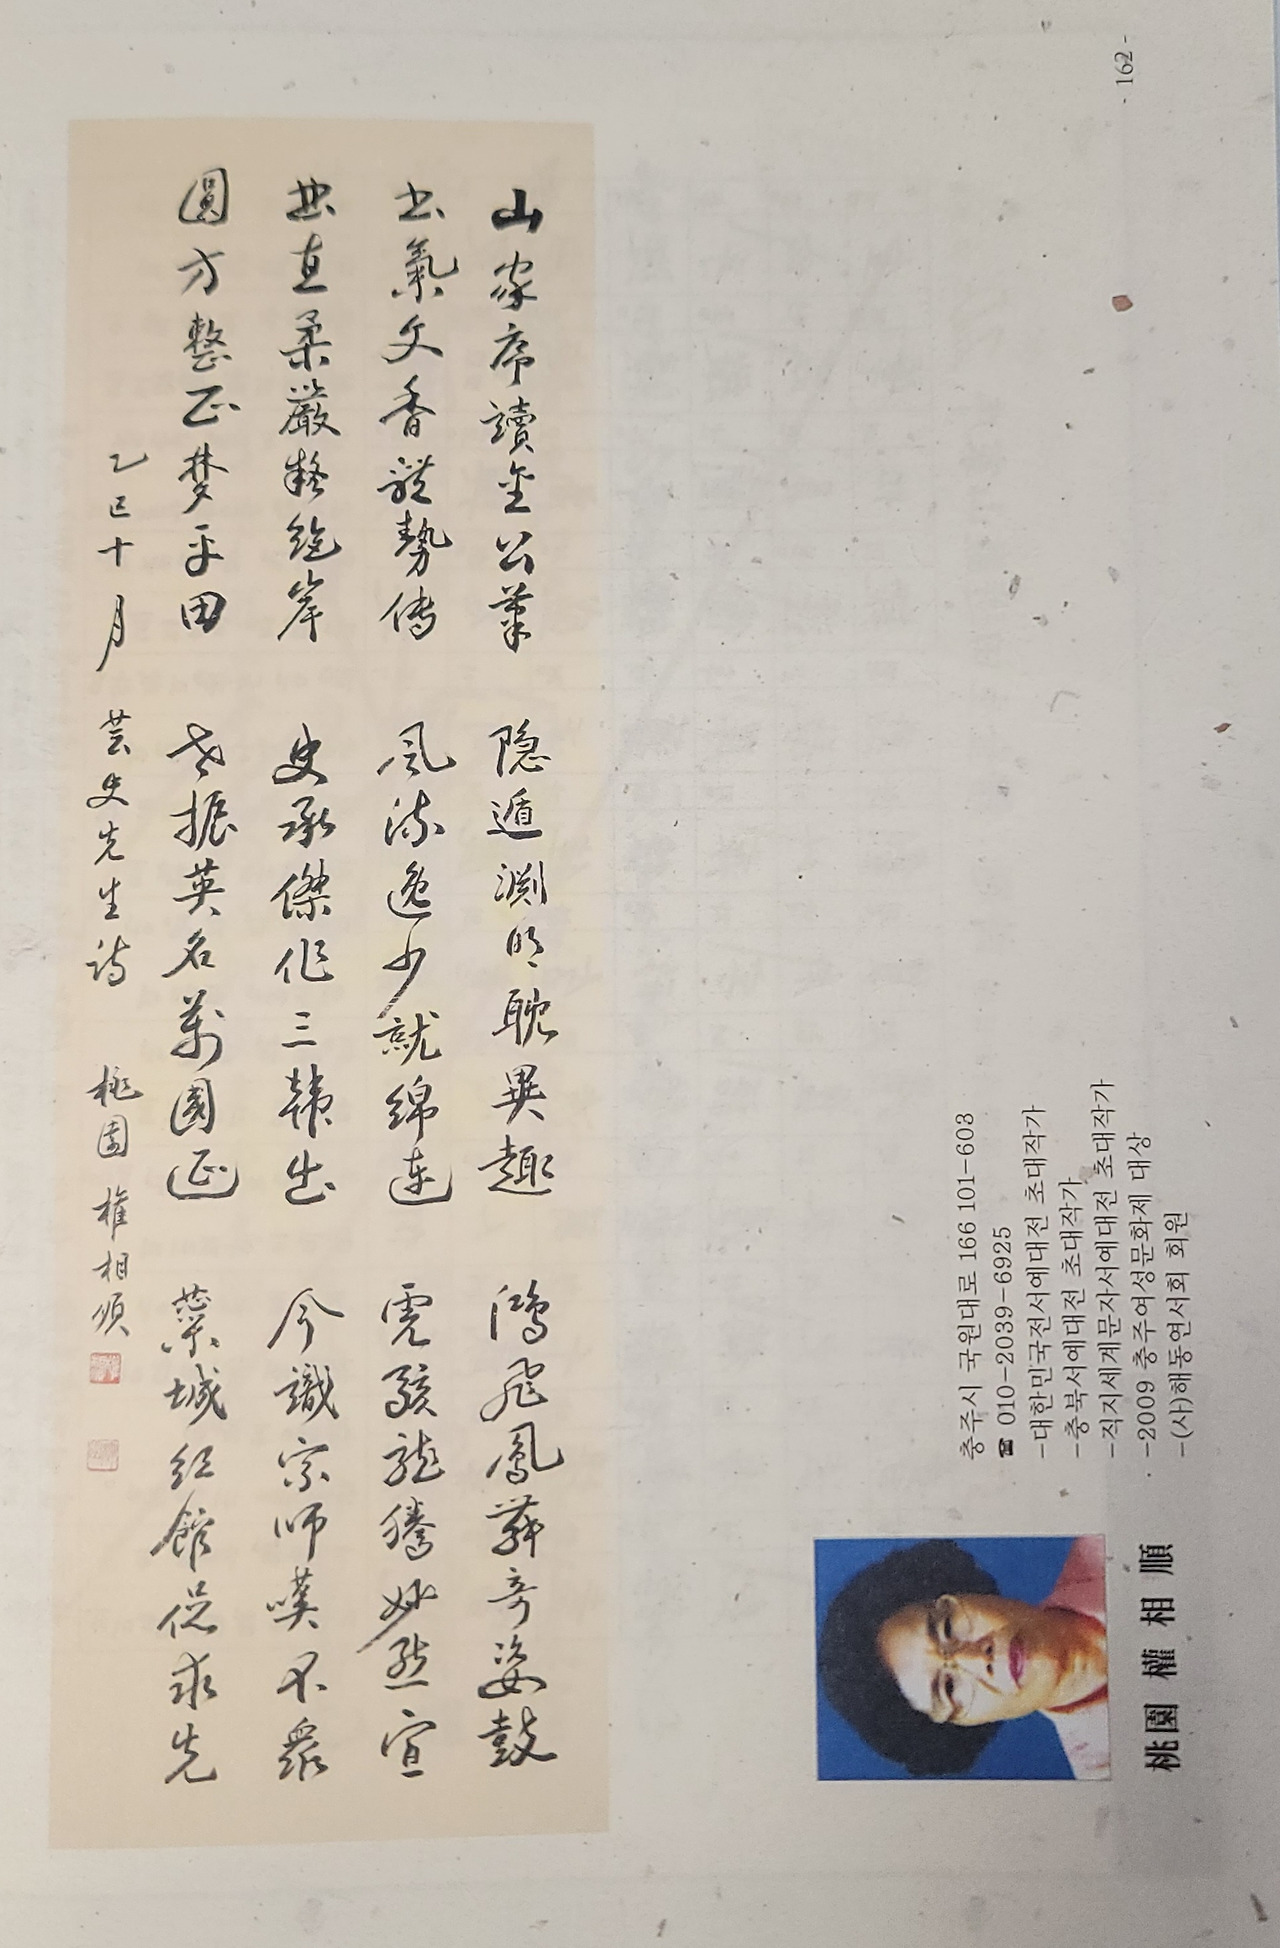 山家席讀金公筆 隐遁淵明耽異趣 鴻飛鳳舞奇姿鼓
書氣文香體勢傳 風流逸少就綿連 虎龍騰妙態宣
曲直柔嚴絶岸 史承傑作三韓出 今識宗師嘆不衆
圓方整正梦平田 世振英名萬國延 蘂城紅館求先
乙巳十月 芸史先生詩 桃園 權相順
桃園 權相順
충주시 국원대로 166 101-603
☎ 010-2039-6925
-대한민국전서예대전 초대작가
-충북서예대전 초대작가
-직지세계문자서예대전 초대작가
-2009 충주여성문화제 대상
-(사)해동연서회 회원
- 162 -